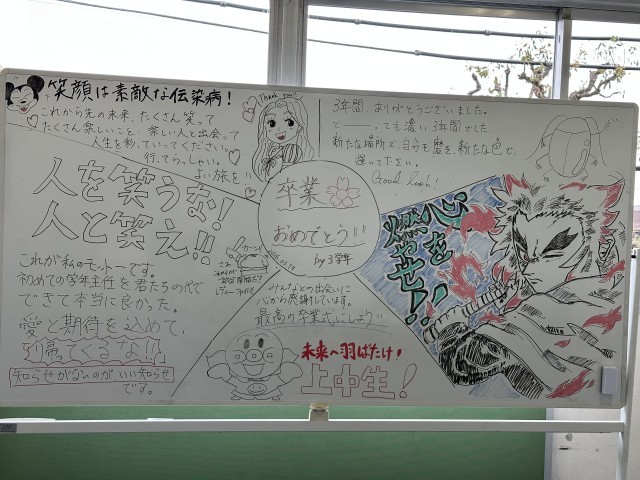 笑顔は素敵な伝染病！
これから先の未来、たくさん笑って
たくさん楽しいこと、楽しい人と出会って
人生を彩っていってください。
行ってらっしゃい。
よい旅を!!
Thank you!!
3年間、ありがとうございました。
と――っても濃い3年間でした
新たな場所で、自分を磨き、新たな色で、
Good luck!
人を笑うな！
人と笑え!!
これが私のモットーです。
初めての学年主任を君たちの代で
できて本当に良かった。
愛と期待を込めて、
帰ってくるな!!
知らせがないのがいい知らせ
です。
卒業
おめでとう!!
by 3学年
心を
燃やせ!!
みんなとの出会いに
心から感謝しています。
最高の卒業式にしよう!!
未来へ羽ばたけ！
上中生！